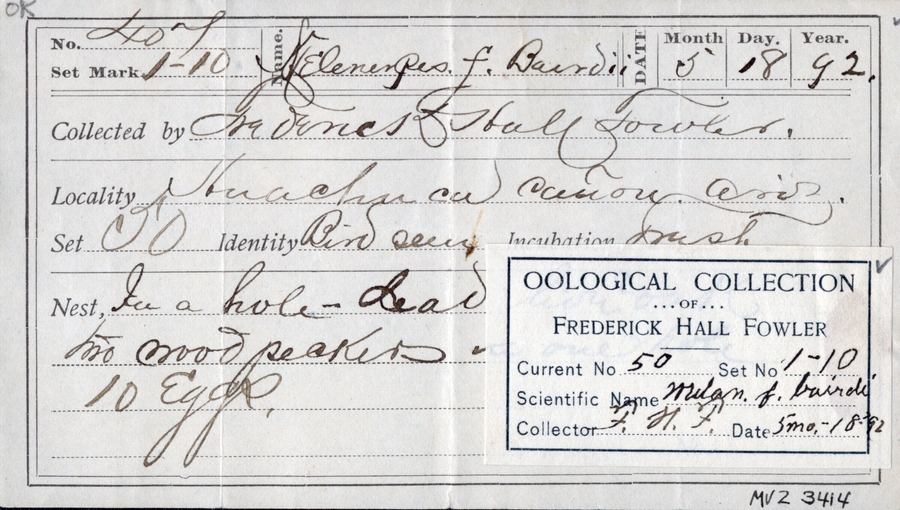 OK
No. 407 Name. Melenerpes. f. Bairdii DATE Month Day. Year.
Set Mark 1-10 5 18 92.
Collected by Frederick Hall Fowler.
Locality Huachuca cañon. Ariz.
Set Identity Bird seen Incubation fresh
Nest, In a hole - dead
two woodpeckers
10 Eggs.
OOLOGICAL COLLECTION
...OF...
FREDERICK HALL FOWLER
Current No 50 Set No 1-10
Scientific Name Melan. f. bairdi
Collector F. H. F. Date 5mo.-18-92
MVZ 3414